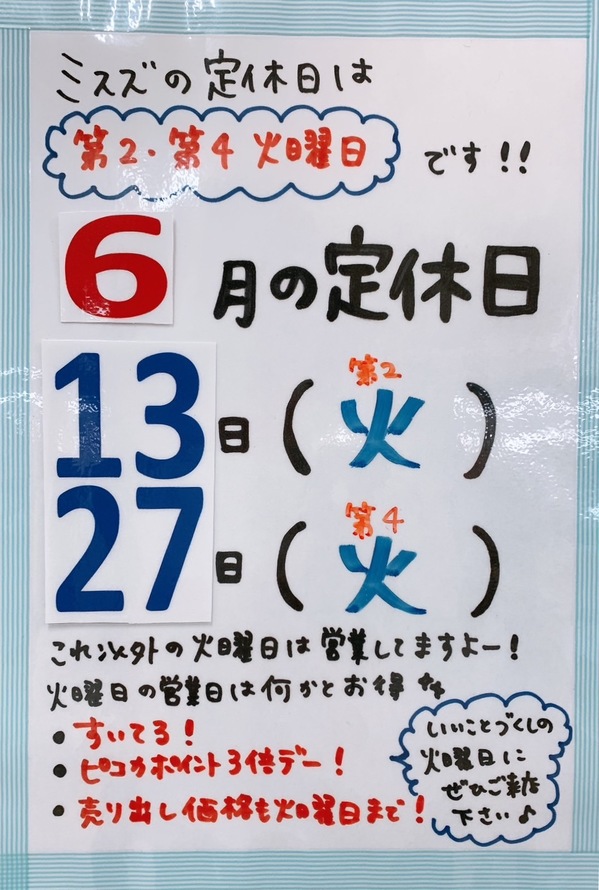 ミスズの定休日は
第2・第4 火曜日 です!!
6月の定休日
13日(第2火)
27日(第4火)
これ以外の火曜日は営業してますよー!
火曜日の営業日は何かとお得
• すいてる!
• ピコカポイント3倍デー!
• 売り出し価格も火曜日まで!
いいことづくしの
火曜日に
ぜひご来店
下さい♪